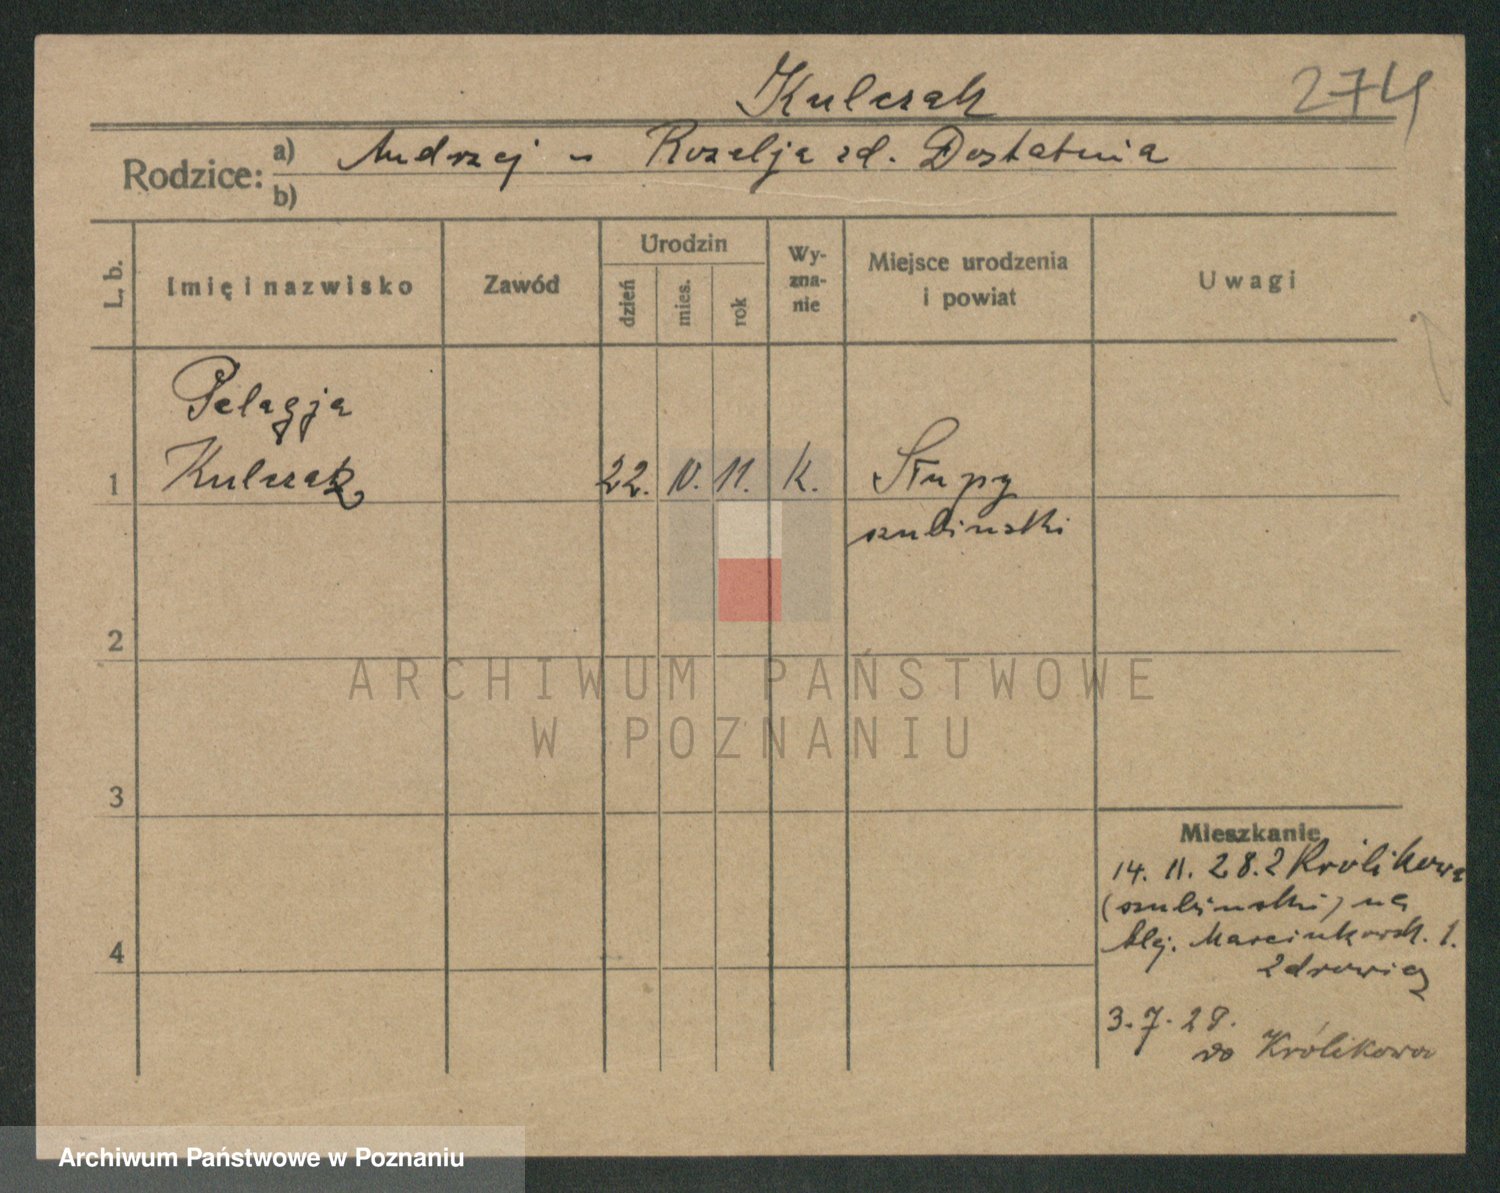 Kulczak
274
Rodzice:
a) Andrzej - Rozalja zd. Dostatnia
b)
L. b.
Imię i nazwisko
Zawód
Urodzin
dzień
mies.
rok
Wy-
zna-
nie
Miejsce urodzenia
i powiat
Uwagi
Pelagja
1 Kulczak 22. IV. 11. K. Słupy
szubiński
2
ARCHIWUM PAŃSTWOWE
W POZNANIU
3
Mieszkanie
14. 11. 28. z Królikowa
(szubiński) na
Alej. Marcinkowsk. 1.
3. 7. 29.
do Królikowa
4
Archiwum Państwowe w Poznaniu